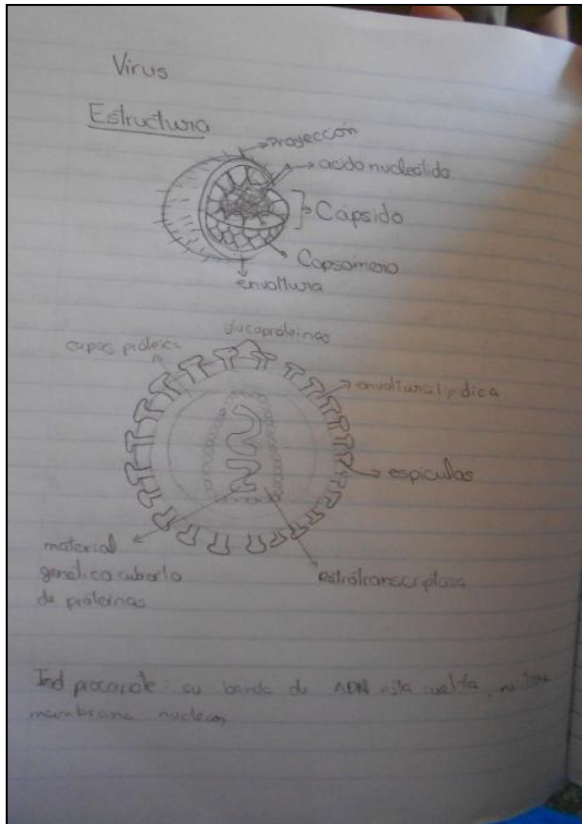 Virus
Estructura
Proyección
acido nucleotido
Cápsido
Capsomero
envoltura
glucoproteinas
capas proteica
envoltura lipidica
espiculas
material
genetico cubierto
de proteinas
retrotranscriptasa
Ind procariote: su banda de ADN esta suelta, no tiene
membrana nuclear